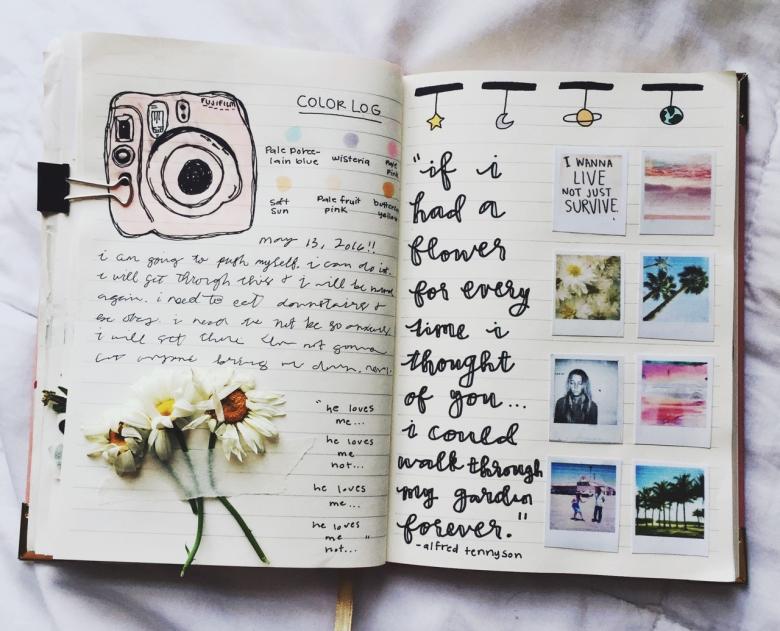 FUJIFILM
COLOR LOG
Pale porce-
lain blue
wisteria
Pale
Pink
Soft
Sun
Pale fruit
pink
yellow
may 13, 2016!!
i am going to push myself. i can do it.
i will get through this & i will be
again. i need to eat downstairs &
be okay. i need to not be so anxious.
i will get there & im not gonna
let anyone bring me down.
"he loves
me...
he loves
me
not...
he loves
me...
he loves
me
not..."
"if i
had a
flower
for every
time i
thought
of you...
i could
walk through
my garden
forever."
-alfred tennyson
I WANNA
LIVE
NOT JUST
SURVIVE.